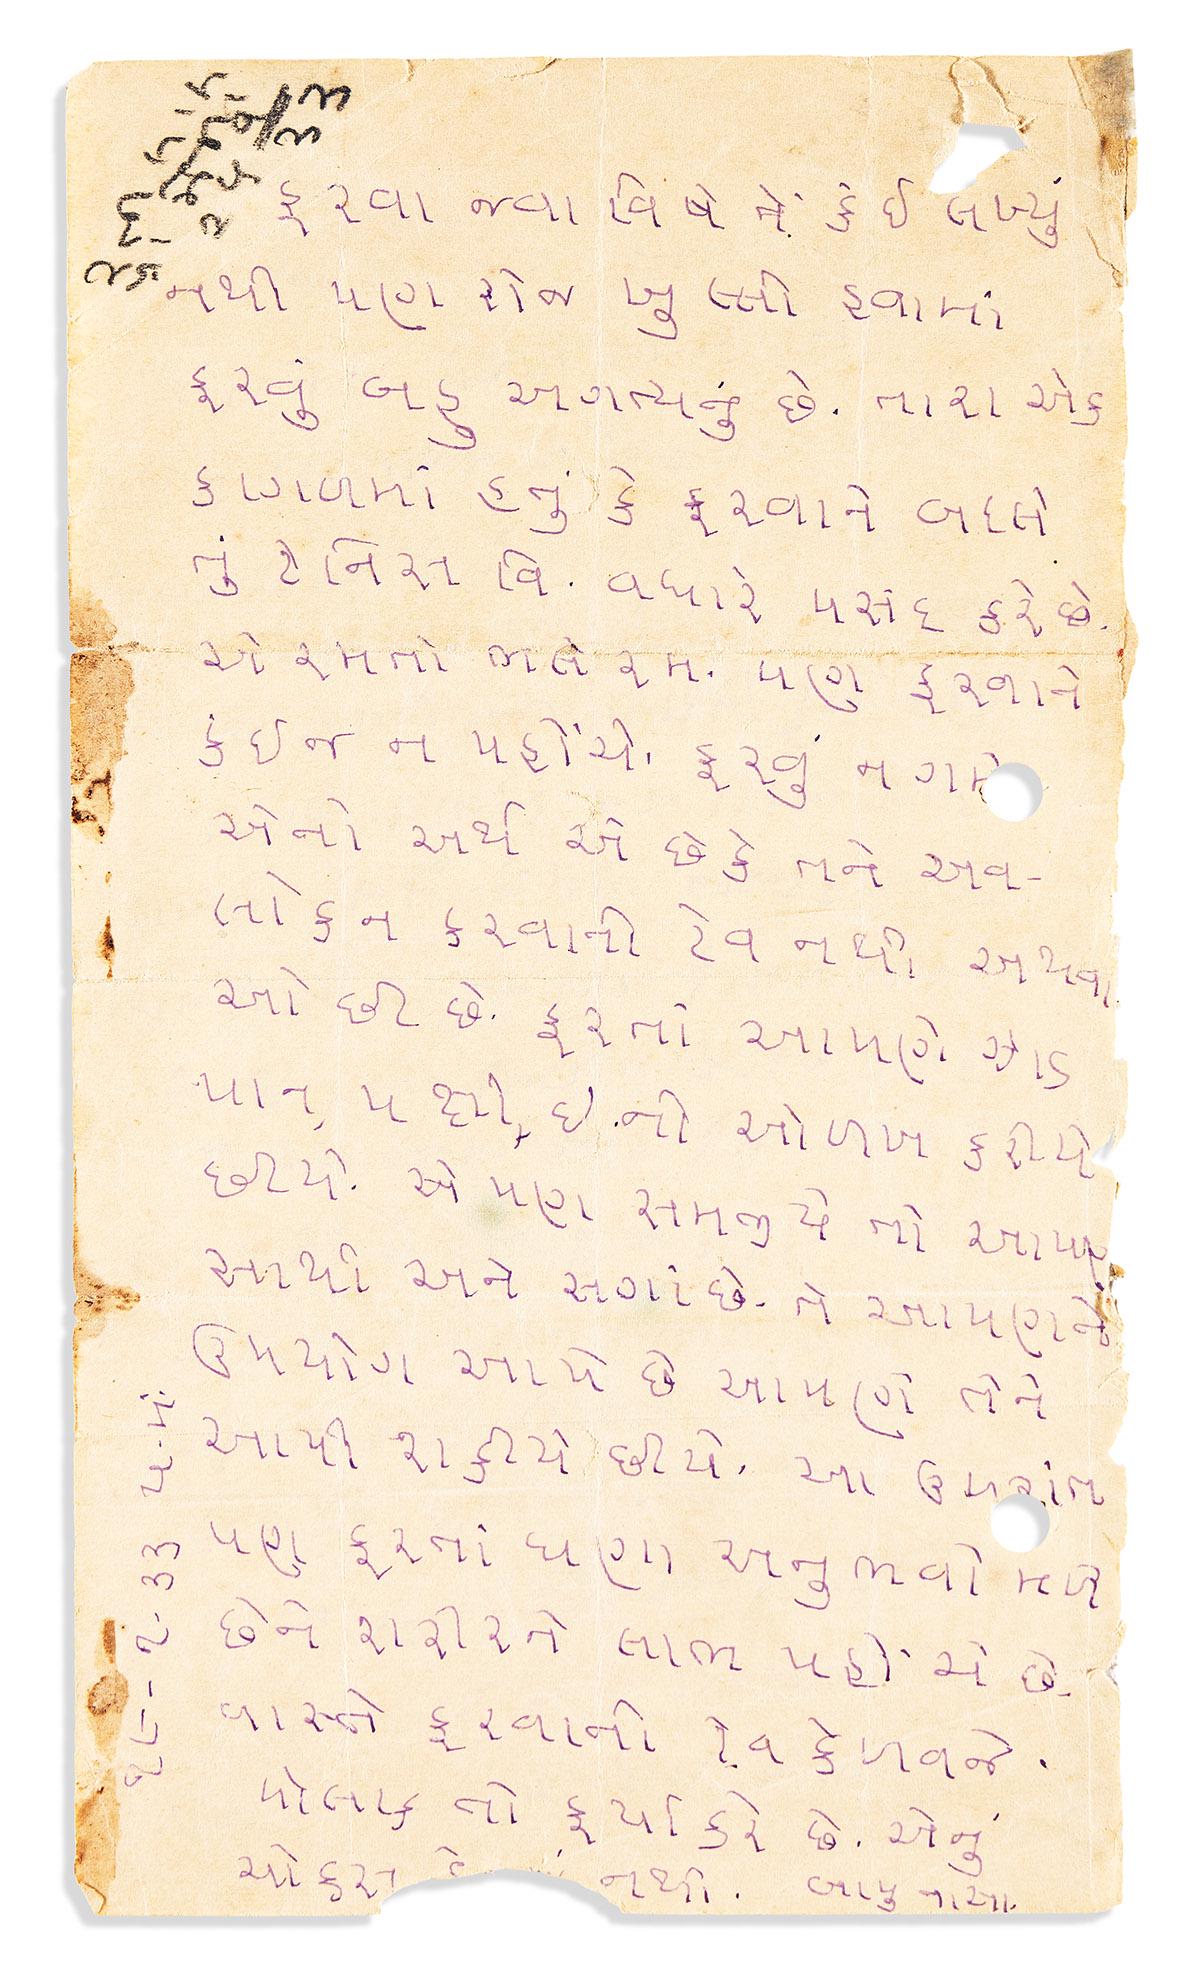 ફરવા જવા વિષે તેં કંઈ લખ્યું
નથી પણ રોજ ખુલ્લી હવામાં
ફરવું બહુ અગત્યનું છે. તારા એક
કાગળમાં હતું કે ફરવાને બદલે
તું ટેનિસ વિ. વધારે પસંદ કરે છે.
એ રમતો ભલે રમ. પણ ફરવાને
કંઈજ ન પહોંચે. ફરવું ન ગમે
એનો અર્થ એ છે કે તને અવ-
લોકન કરવાની ટેવ નથી અથવા
ઓછી છે. ફરતાં આપણે ઝાડ
પાન, પક્ષી, ઈ.ની ઓળખ કરીયે
છીયે. એ પણ સમજીયે તો આપણ
સાથી અને સગાં છે. તે આપણને
ઉપયોગ આપે છે આપણે તેને
આપી શકીયે છીયે. આ ઉપરાંત
પણ ફરતાં ઘણા અનુભવો મળે
છેને શરીરને લાભ પહોંચે છે.
ફરવાની ટેવ કેળવજે.
પોલાક તો ફર્યા કરે છે. એનું
ચોકસ નથી. બાપુના આ.
૨૮-૨-૩૩ ય.મં.